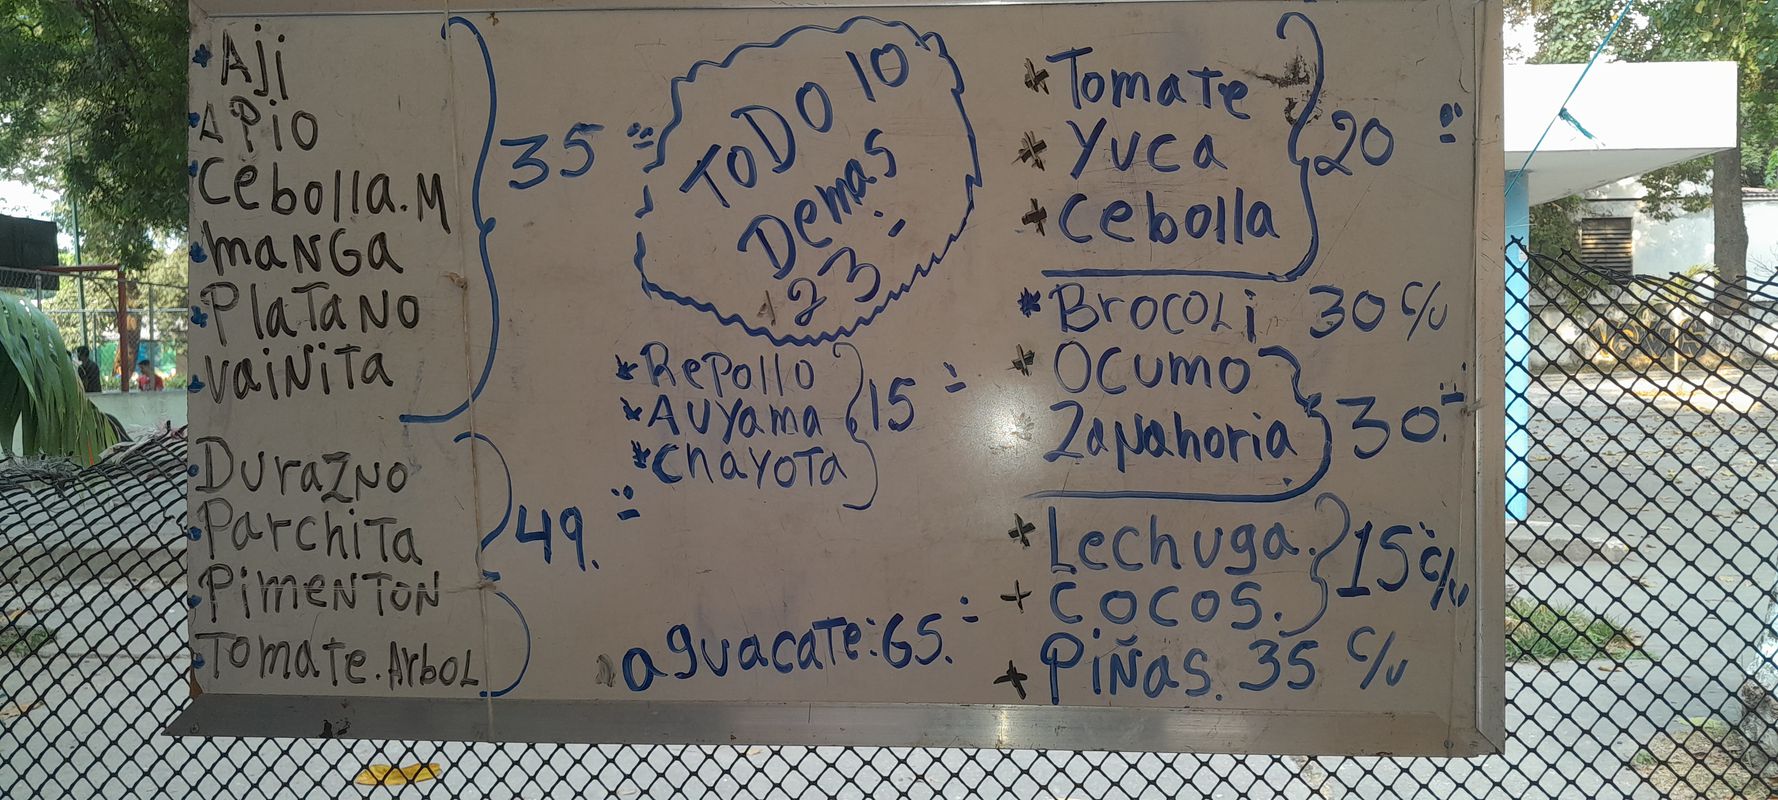 Aji
APiO
Cebolla.M
maNGa
PlaTaNO
VaiNiTa
35
DuraZNO
ParchiTa
PimeNTON
Tomate.Arbol
49.
TODO 10
Demas
23
Repollo
Auyama
ChayoTa
15
aguacaTe:65.
TomaTe
Yuca
Cebolla
20
BrocoLi 30 c/u
Ocumo
ZaNahoria
30
Lechuga.
COCOS.
15 c/u
PiÑas. 35 c/u